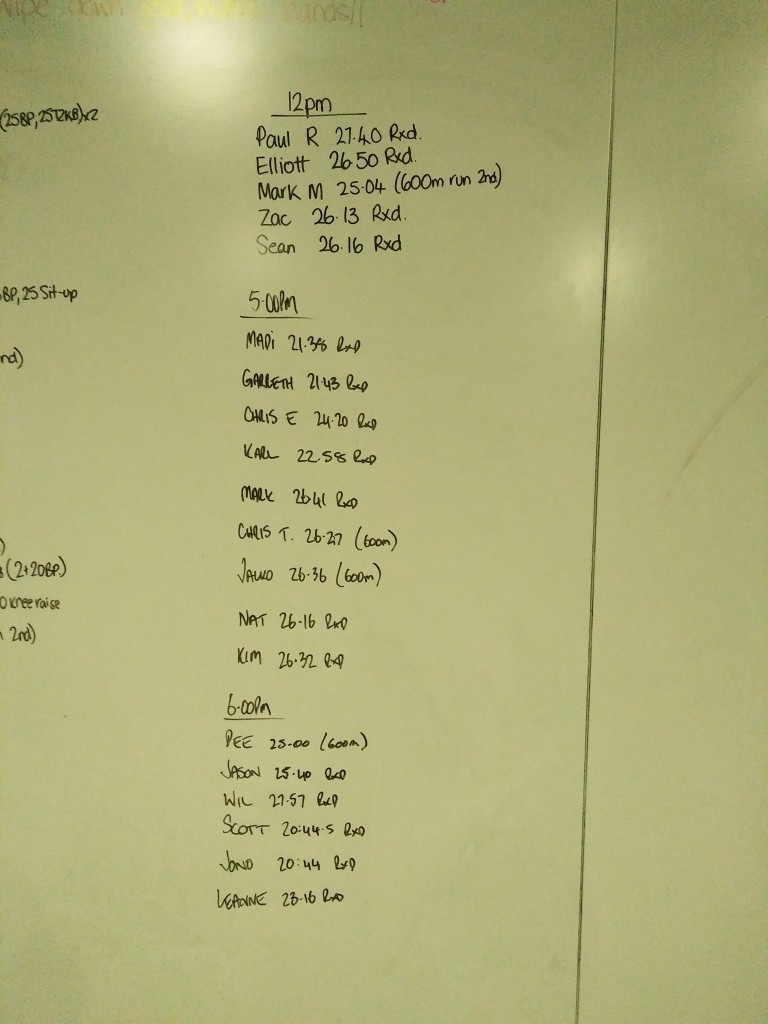 wipe down hands!!
(25BP, 25T2KB)x2
BP, 25 Sit-up
nd)
)
(2+20BP.)
0 knee raise
2nd)
12pm
Paul R 27.40 Rxd.
Elliott 26.50 Rxd.
Mark M 25.04 (600m run 2nd)
Zac 26.13 Rxd.
Sean 26.16 Rxd
5.00PM
MADi 21.38 RxD
GARRETH 21.43 RxD
CHRIS E 24.20 RxD
KARL 22.58 RxD
MARK 26.41 RxD
CHRIS T. 26.27 (600m)
26.36 (600m)
NAT 26.16 RxD
KIM 26.32 RxD
6.00PM
DEE 25.00 (600m)
JASON 25.40 RxD
WIL 27.57 RxD
SCOTT 20:44.5 RxD
JONO 20:44 RxD
LEANNE 23.16 RxD